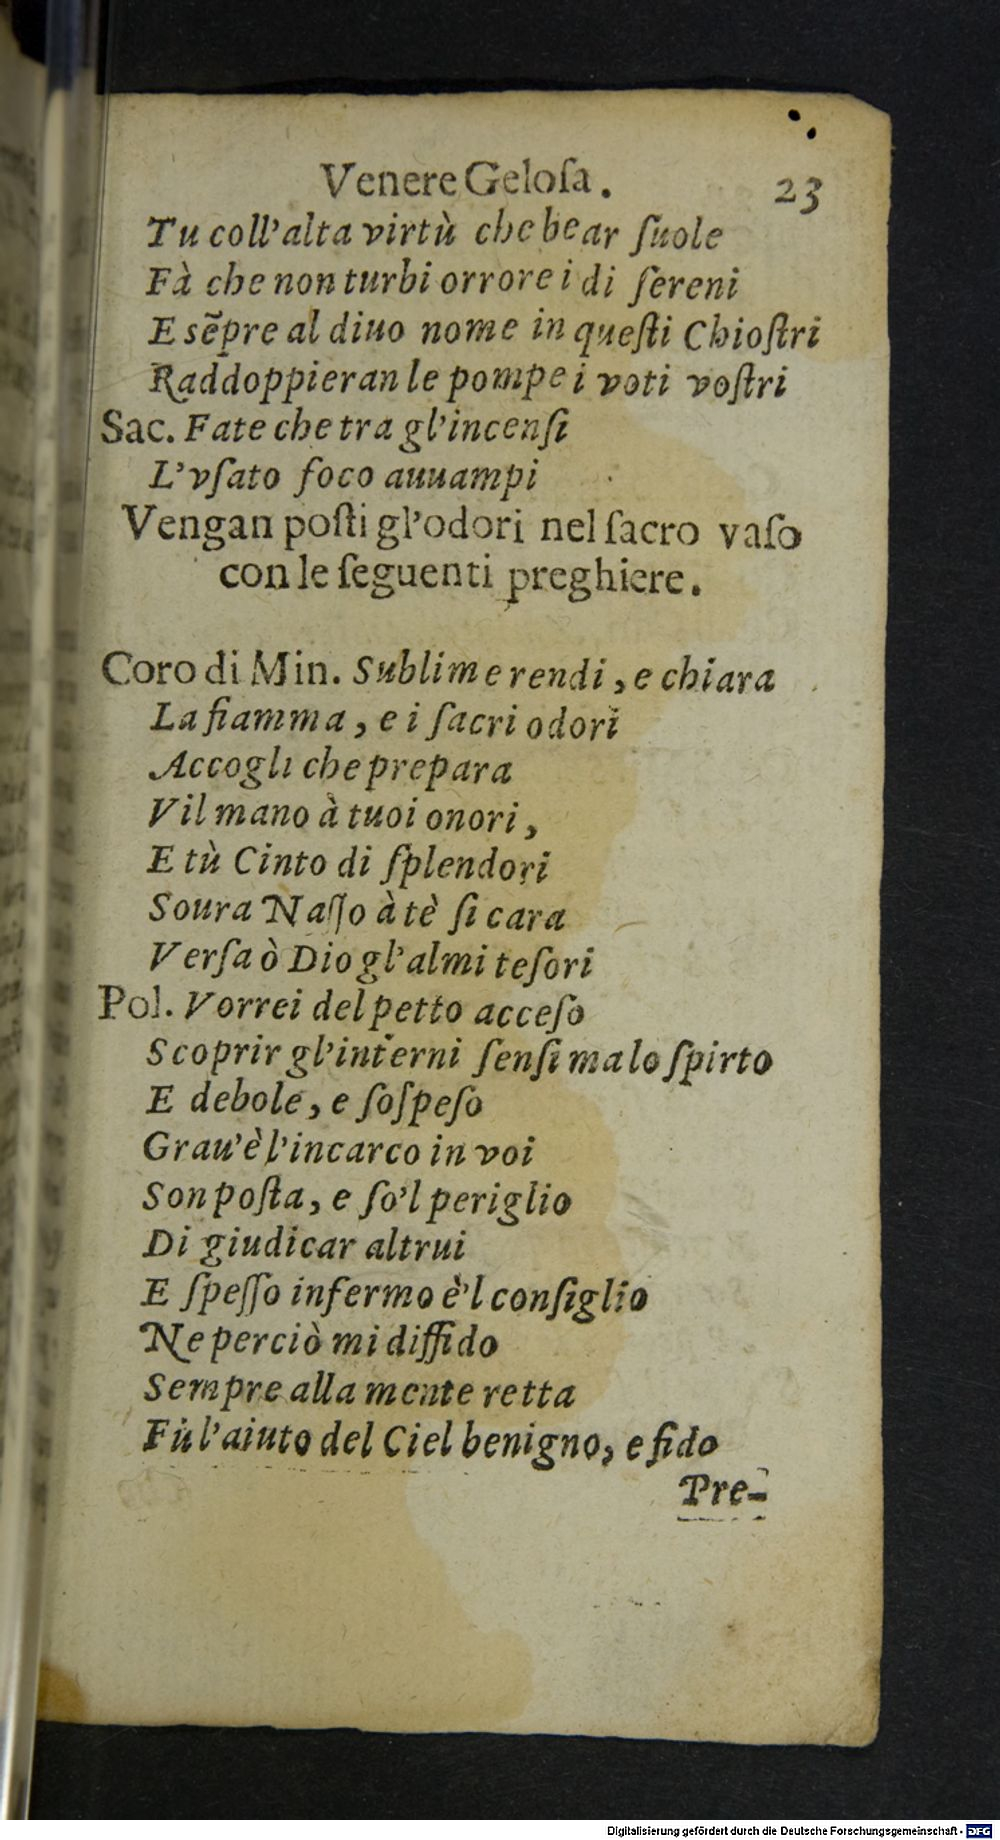 Venere Geloſa. 23
Tu coll'alta virtù che bear ſuole
Fà che non turbi orrore i di ſereni
E sẽpre al diuo nome in queſti Chioſtri
Raddoppieran le pompe i voti voſtri
Sac. Fate che tra gl'incenſi
L'vſato foco auuampi
Vengan poſti gl'odori nel ſacro vaſo
con le ſeguenti preghiere.
Coro di Min. Sublime rendi, e chiara
La fiamma, e i ſacri odori
Accogli che prepara
Vil mano à tuoi onori,
E tù Cinto di ſplendori
Soura Naſſo à tè ſi cara
Verſa ò Dio gl'almi teſori
Pol. Vorrei del petto acceſo
Scoprir gl'interni ſenſi ma lo ſpirto
E debole, e ſoſpeſo
Grau'è l'incarco in voi
Son poſta, e ſo'l periglio
Di giudicar altrui
E ſpeſſo infermo è'l conſiglio
Ne perciò mi diffido
Sempre alla mente retta
Fù l'aiuto del Ciel benigno, e fido
Pre-
Digitalisierung gefördert durch die Deutsche Forschungsgemeinschaft - DFG